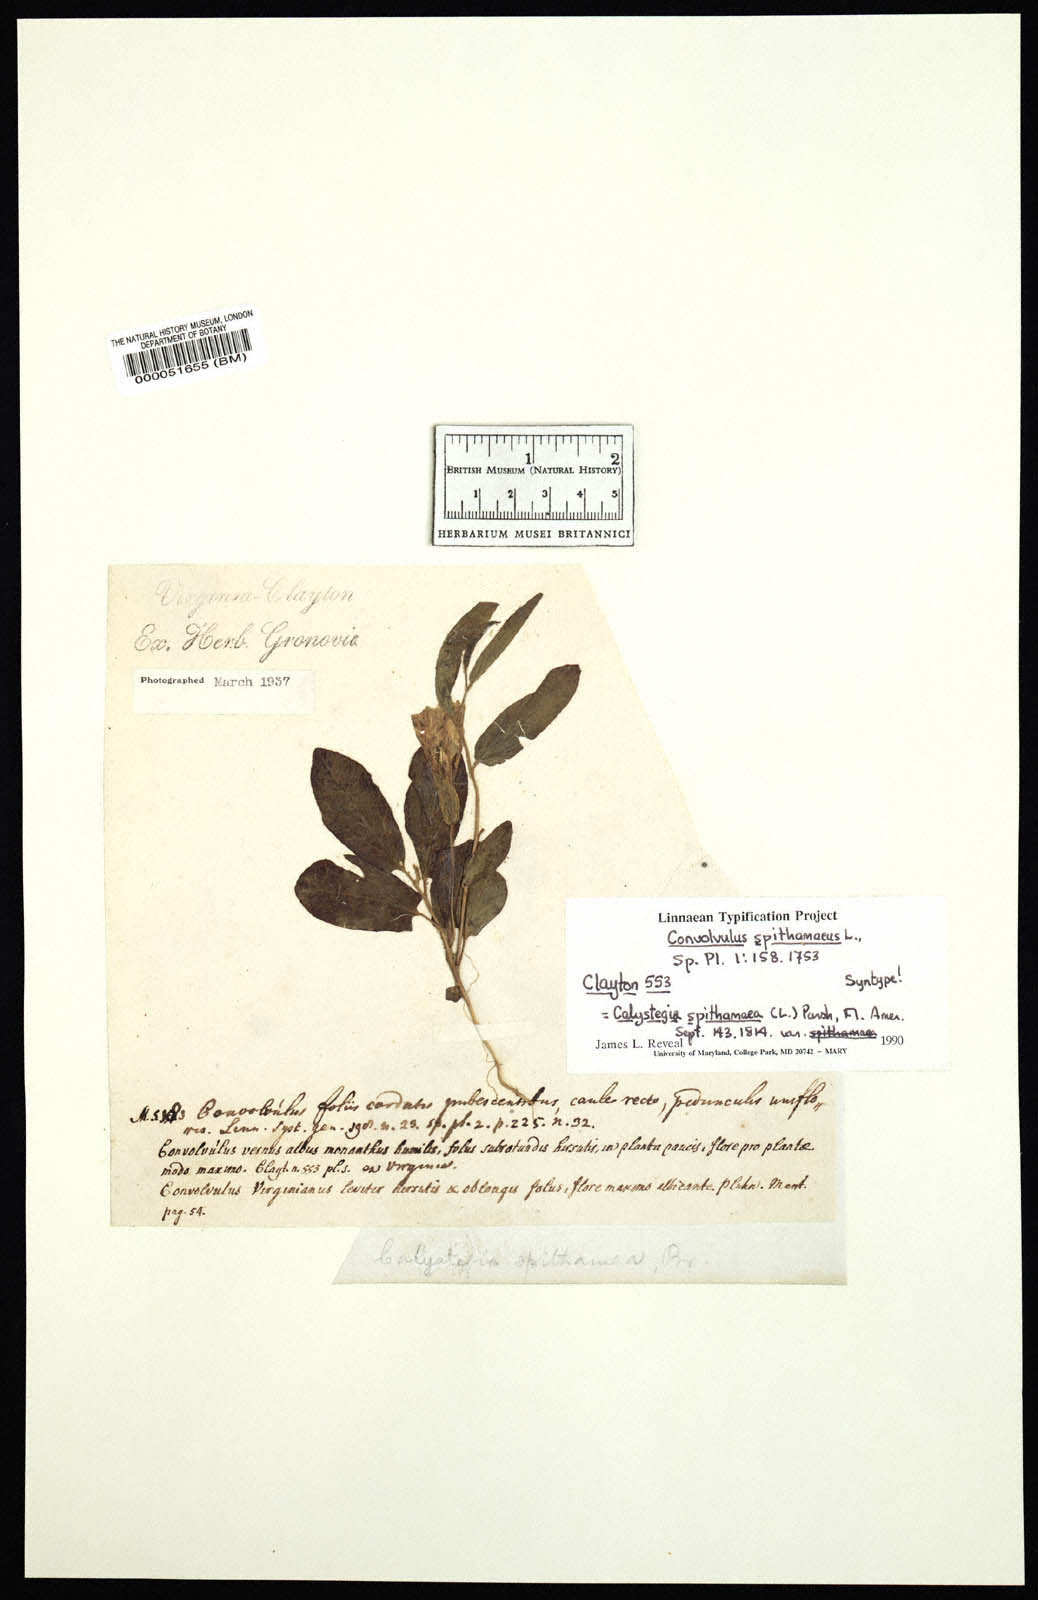 THE NATURAL HISTORY MUSEUM, LONDON
DEPARTMENT OF BOTANY
000051655 (BM)
1 2
BRITISH MUSEUM (NATURAL HISTORY)
1 2 3 4 5
HERBARIUM MUSEI BRITANNICI
Virginia - Clayton
Ex. Herb. Gronovii
Photographed March 1937
Linnaean Typification Project
Convolvulus spithamaeus L.,
Sp. Pl. 1: 158. 1753
Clayton 553 Syntype!
= Calystegia spithamaea (L.) Pursh, Fl. Amer.
Sept. 143. 1814. var. spithamaea
James L. Reveal 1990
University of Maryland, College Park, MD 20742 – MARY
Convolvulus foliis cordatis pubescentibus, caule recto, pedunculis uniflo,,
ris. Linn. Syst. gen. n. 23. sp. pl. 2. p. 225. n. 32.
Convolvulus vernus albus monanthus humilis, foliis subrotundis hirsutis, in planta paucis, flore pro plantæ
modo maximo. Clayt. n. 553 pl. s. ex Virginia.
Convolvulus Virginianus leviter hirsutis & oblongis foliis, flore maximo albicante. Plukn. Mant.
pag. 54.
Calystegia spithamea, Br.